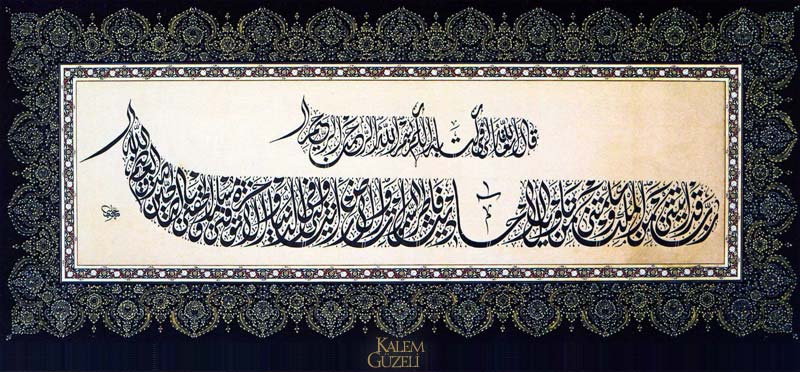 قال الله تعالى في كتابه الكريم بسم الله الرحمن الرحيم
رب قد آتيتني من الملك وعلمتني من تأويل الأحاديث فاطر السموات والأرض أنت وليي في الدنيا والآخرة توفني مسلما وألحقني بالصالحين صدق الله العظيم
KALEM
GÜZELİ